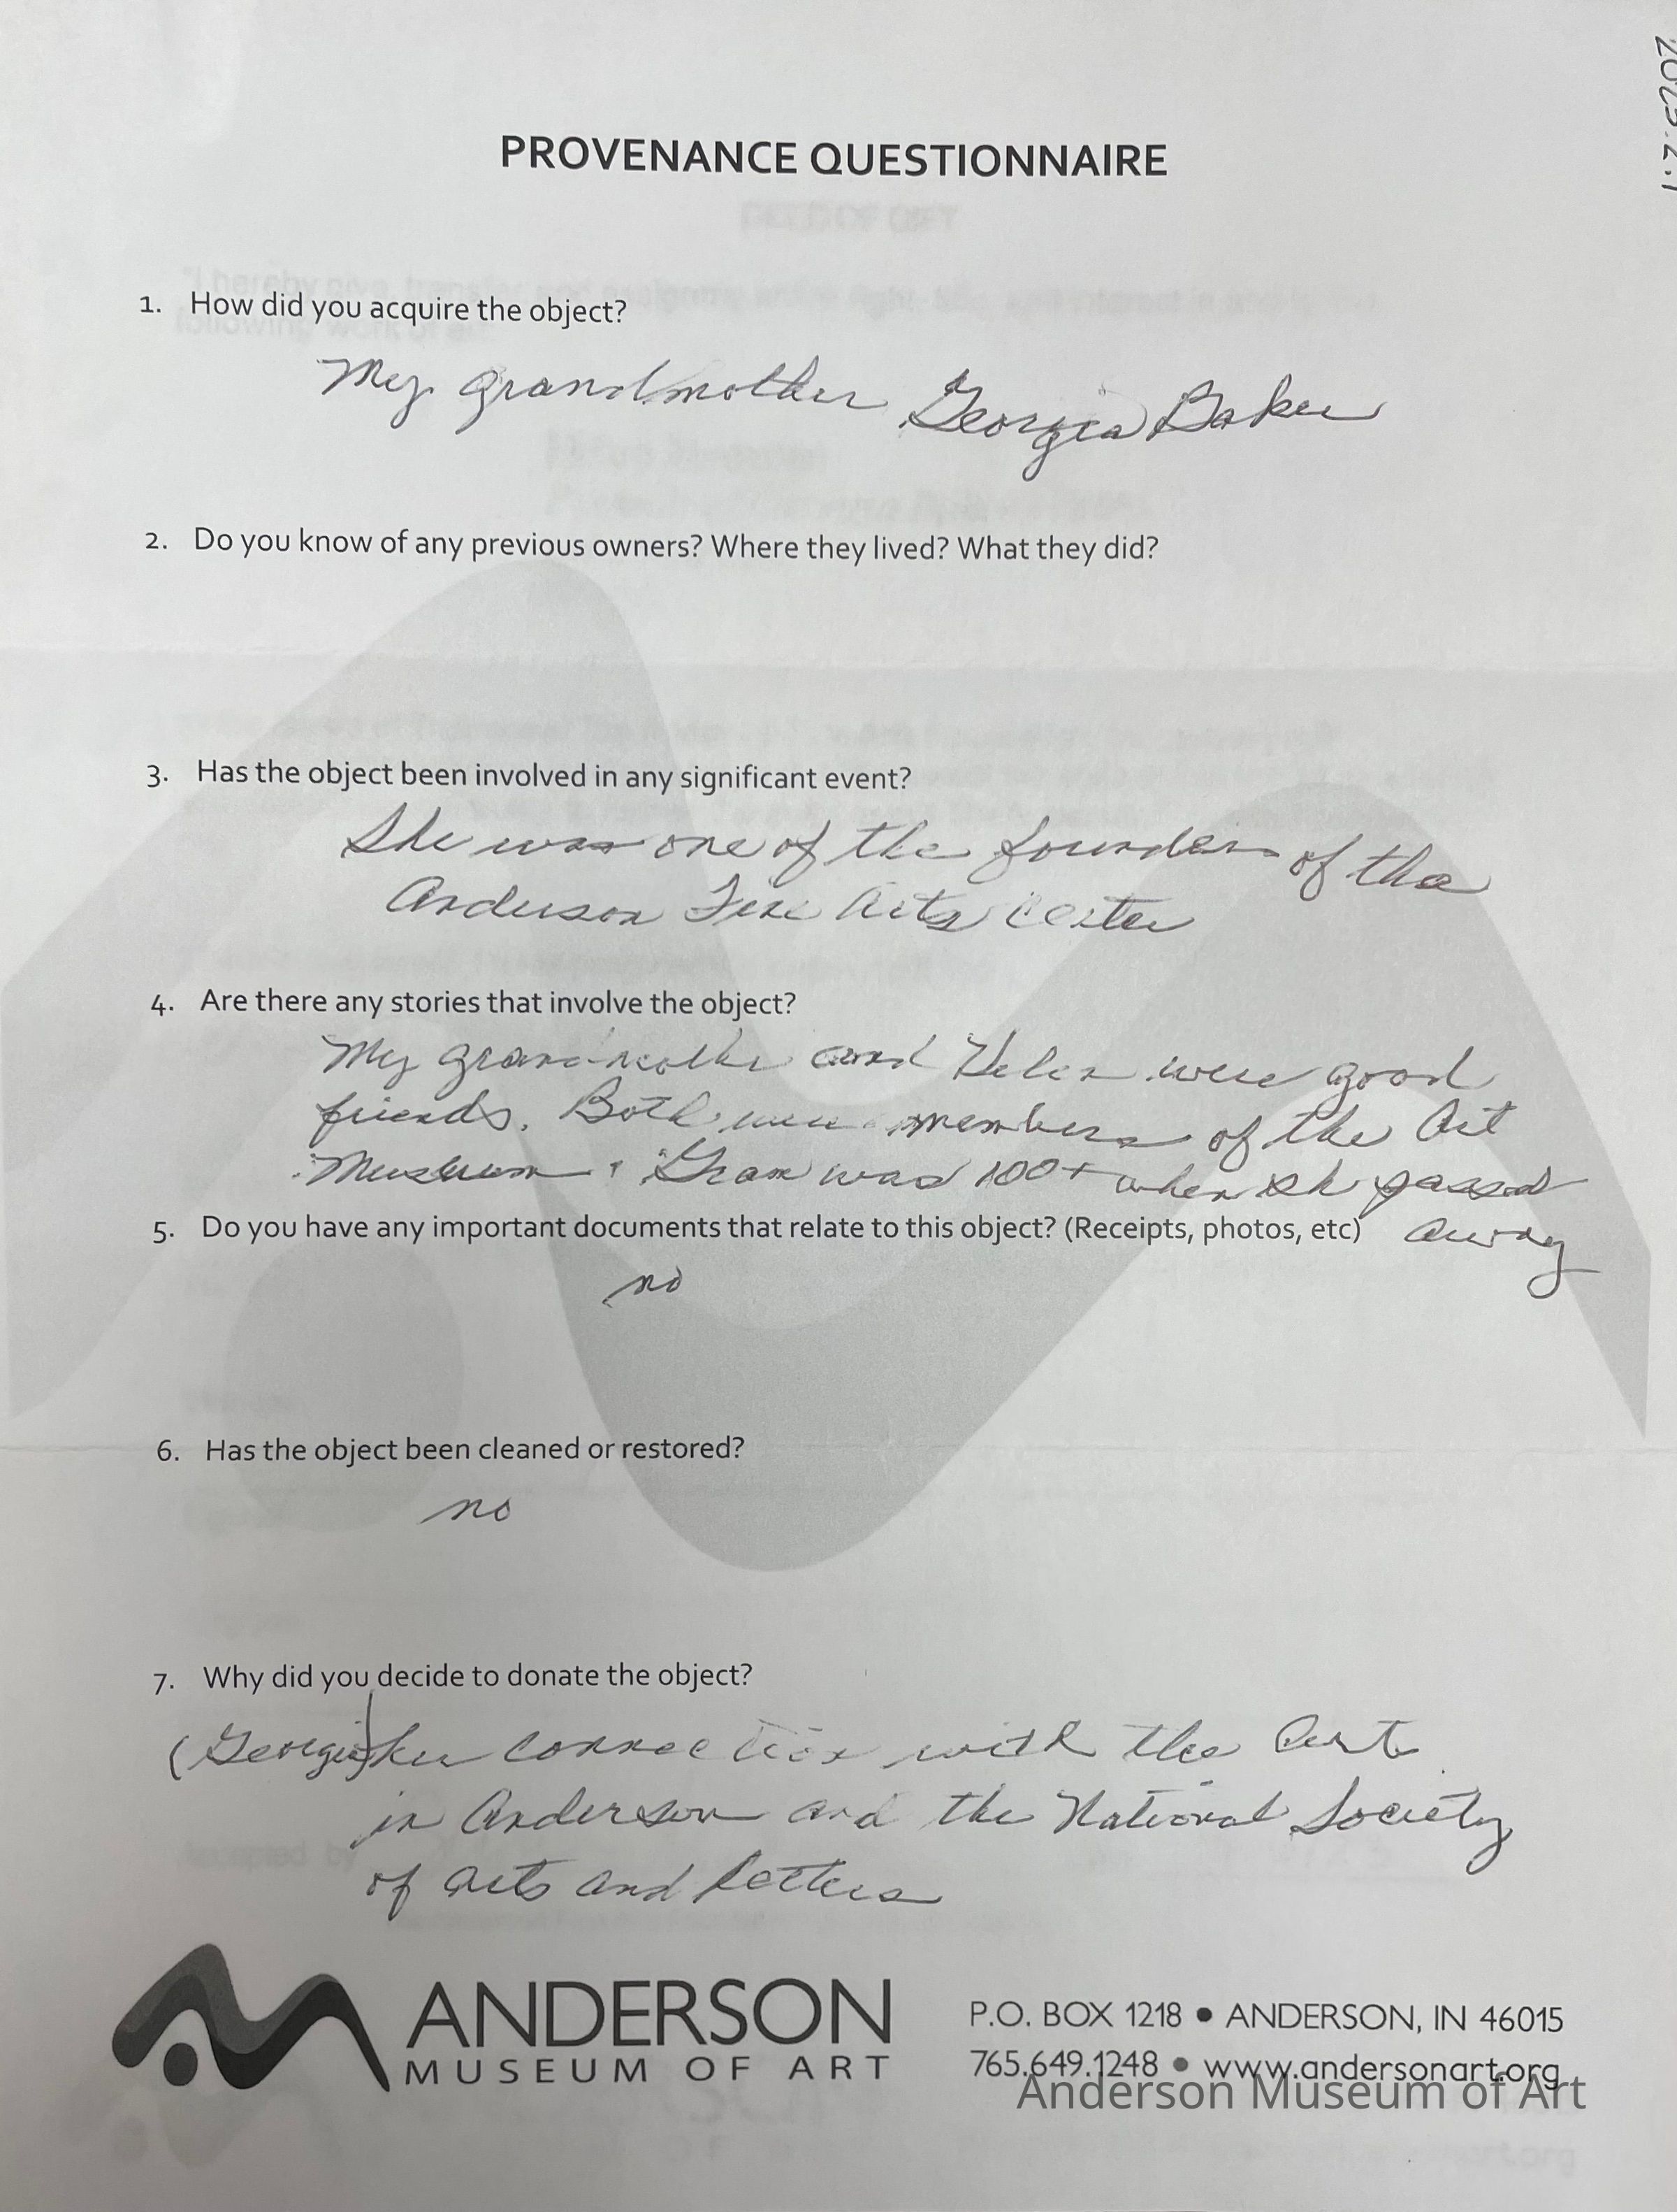 PROVENANCE QUESTIONNAIRE
1. How did you acquire the object?
My grandmother Georgia Baker
2. Do you know of any previous owners? Where they lived? What they did?
3. Has the object been involved in any significant event?
She was one of the founders of the
Anderson Fine Arts Center
4. Are there any stories that involve the object?
My grandmother and Helen were good
friends. Both were members of the Art
Museum. Gram was 100+ when sh passed
away
5. Do you have any important documents that relate to this object? (Receipts, photos, etc)
no
6. Has the object been cleaned or restored?
no
7. Why did you decide to donate the object?
(Georgia) her connection with the Art
in Anderson and the National Society
of Arts and Letters
ANDERSON
MUSEUM OF ART
P.O. BOX 1218 • ANDERSON, IN 46015
765.649.1248 • www.andersonart.org
Anderson Museum of Art